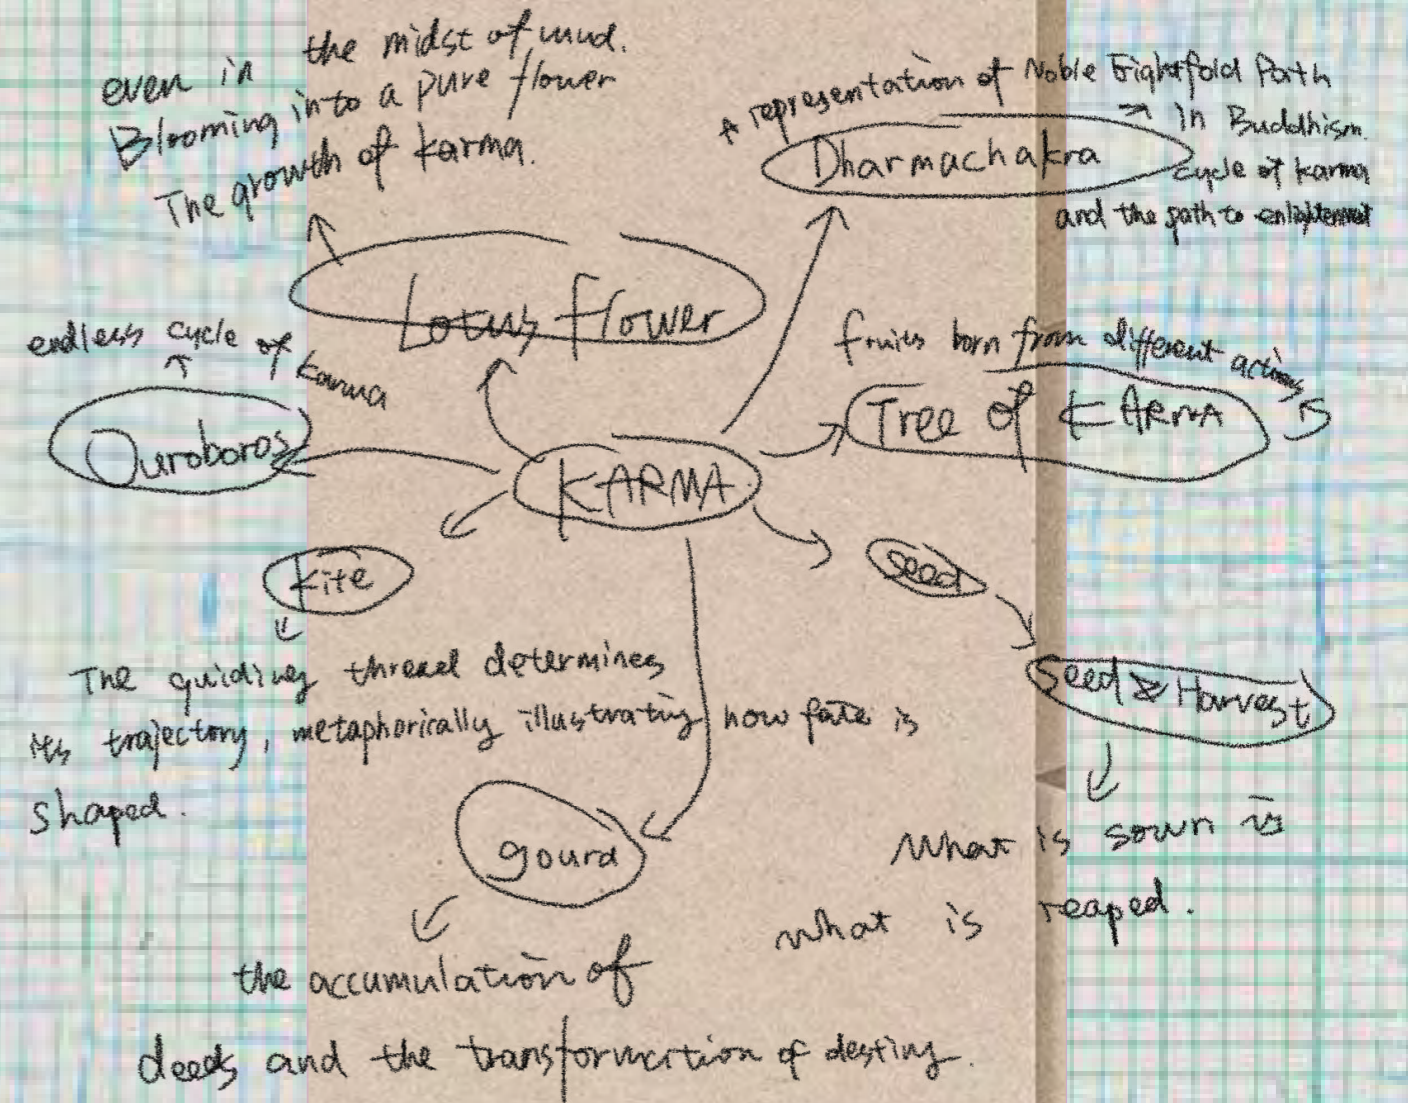 even in the midst of mud.
Blooming into a pure flower
The growth of karma.
Lotus flower
A representation of Noble Eightfold Path
in Buddhism.
Dharmachakra
cycle of karma
and the path to enlightenment
endless cycle of
karma
Ouroboros
fruits born from different actions
Tree of KARMA
KARMA
Kite
The guiding thread determines
its trajectory, metaphorically illustrating how fate is
shaped.
Seed
Seed & Harvest
What is sown is
what is reaped.
gourd
the accumulation of
deeds and the transformation of destiny.